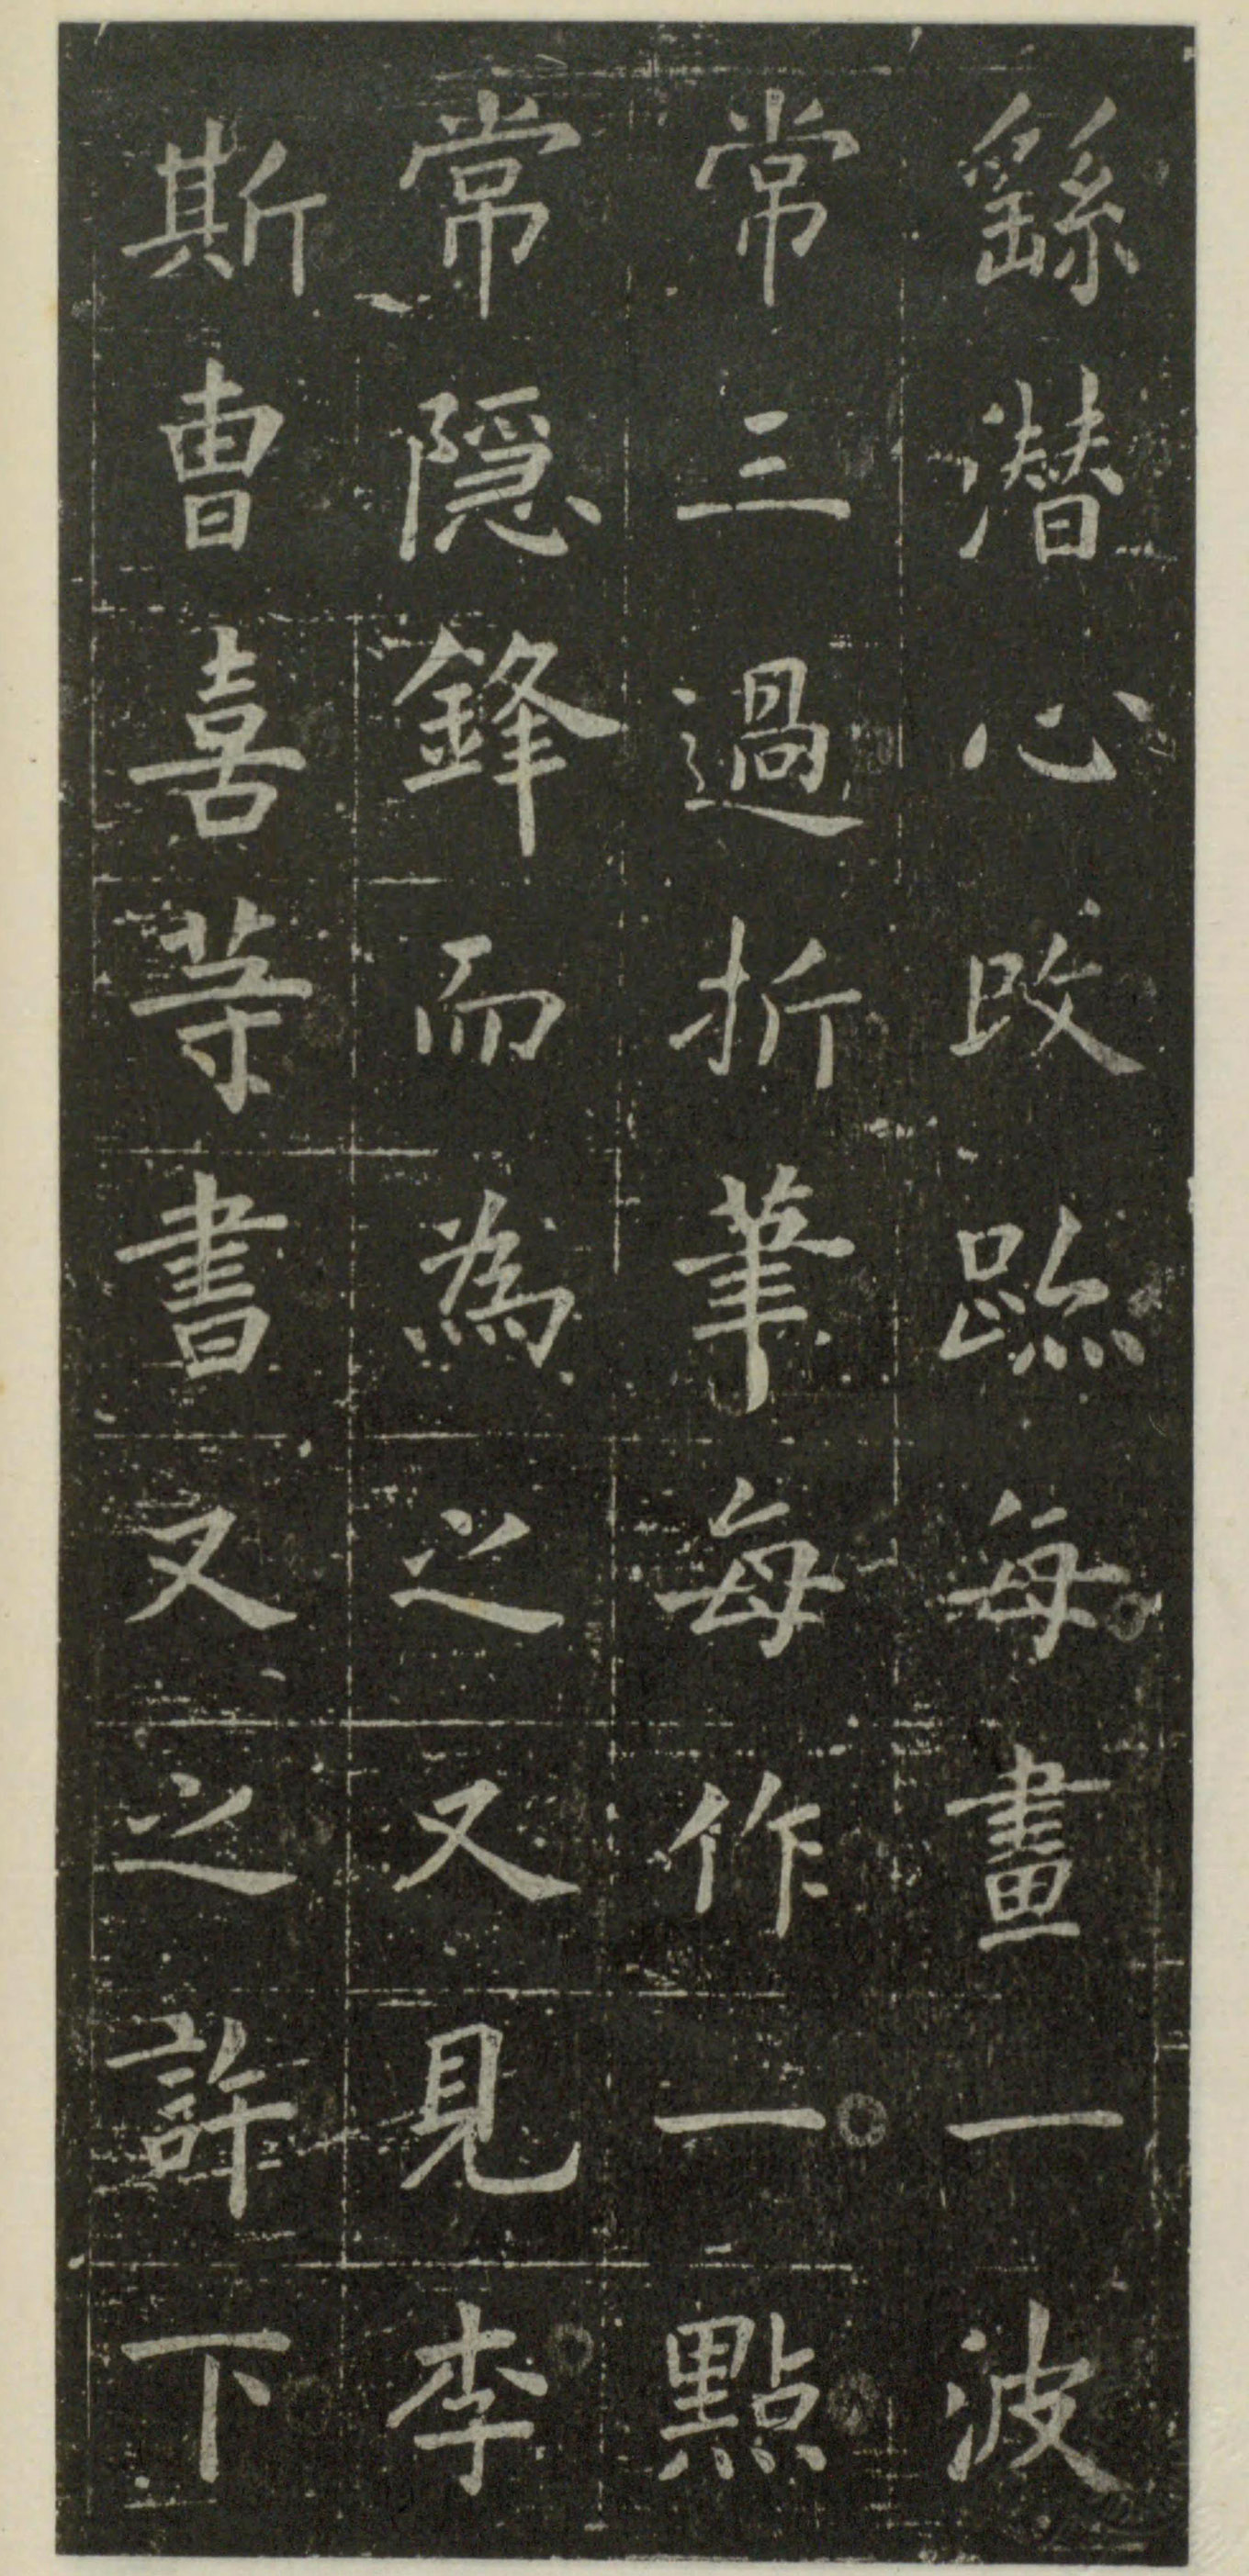 繇潜心改跡每畫一波
常三過折筆每作一點
常隠鋒而為之又見李
斯曹喜等書又之許下